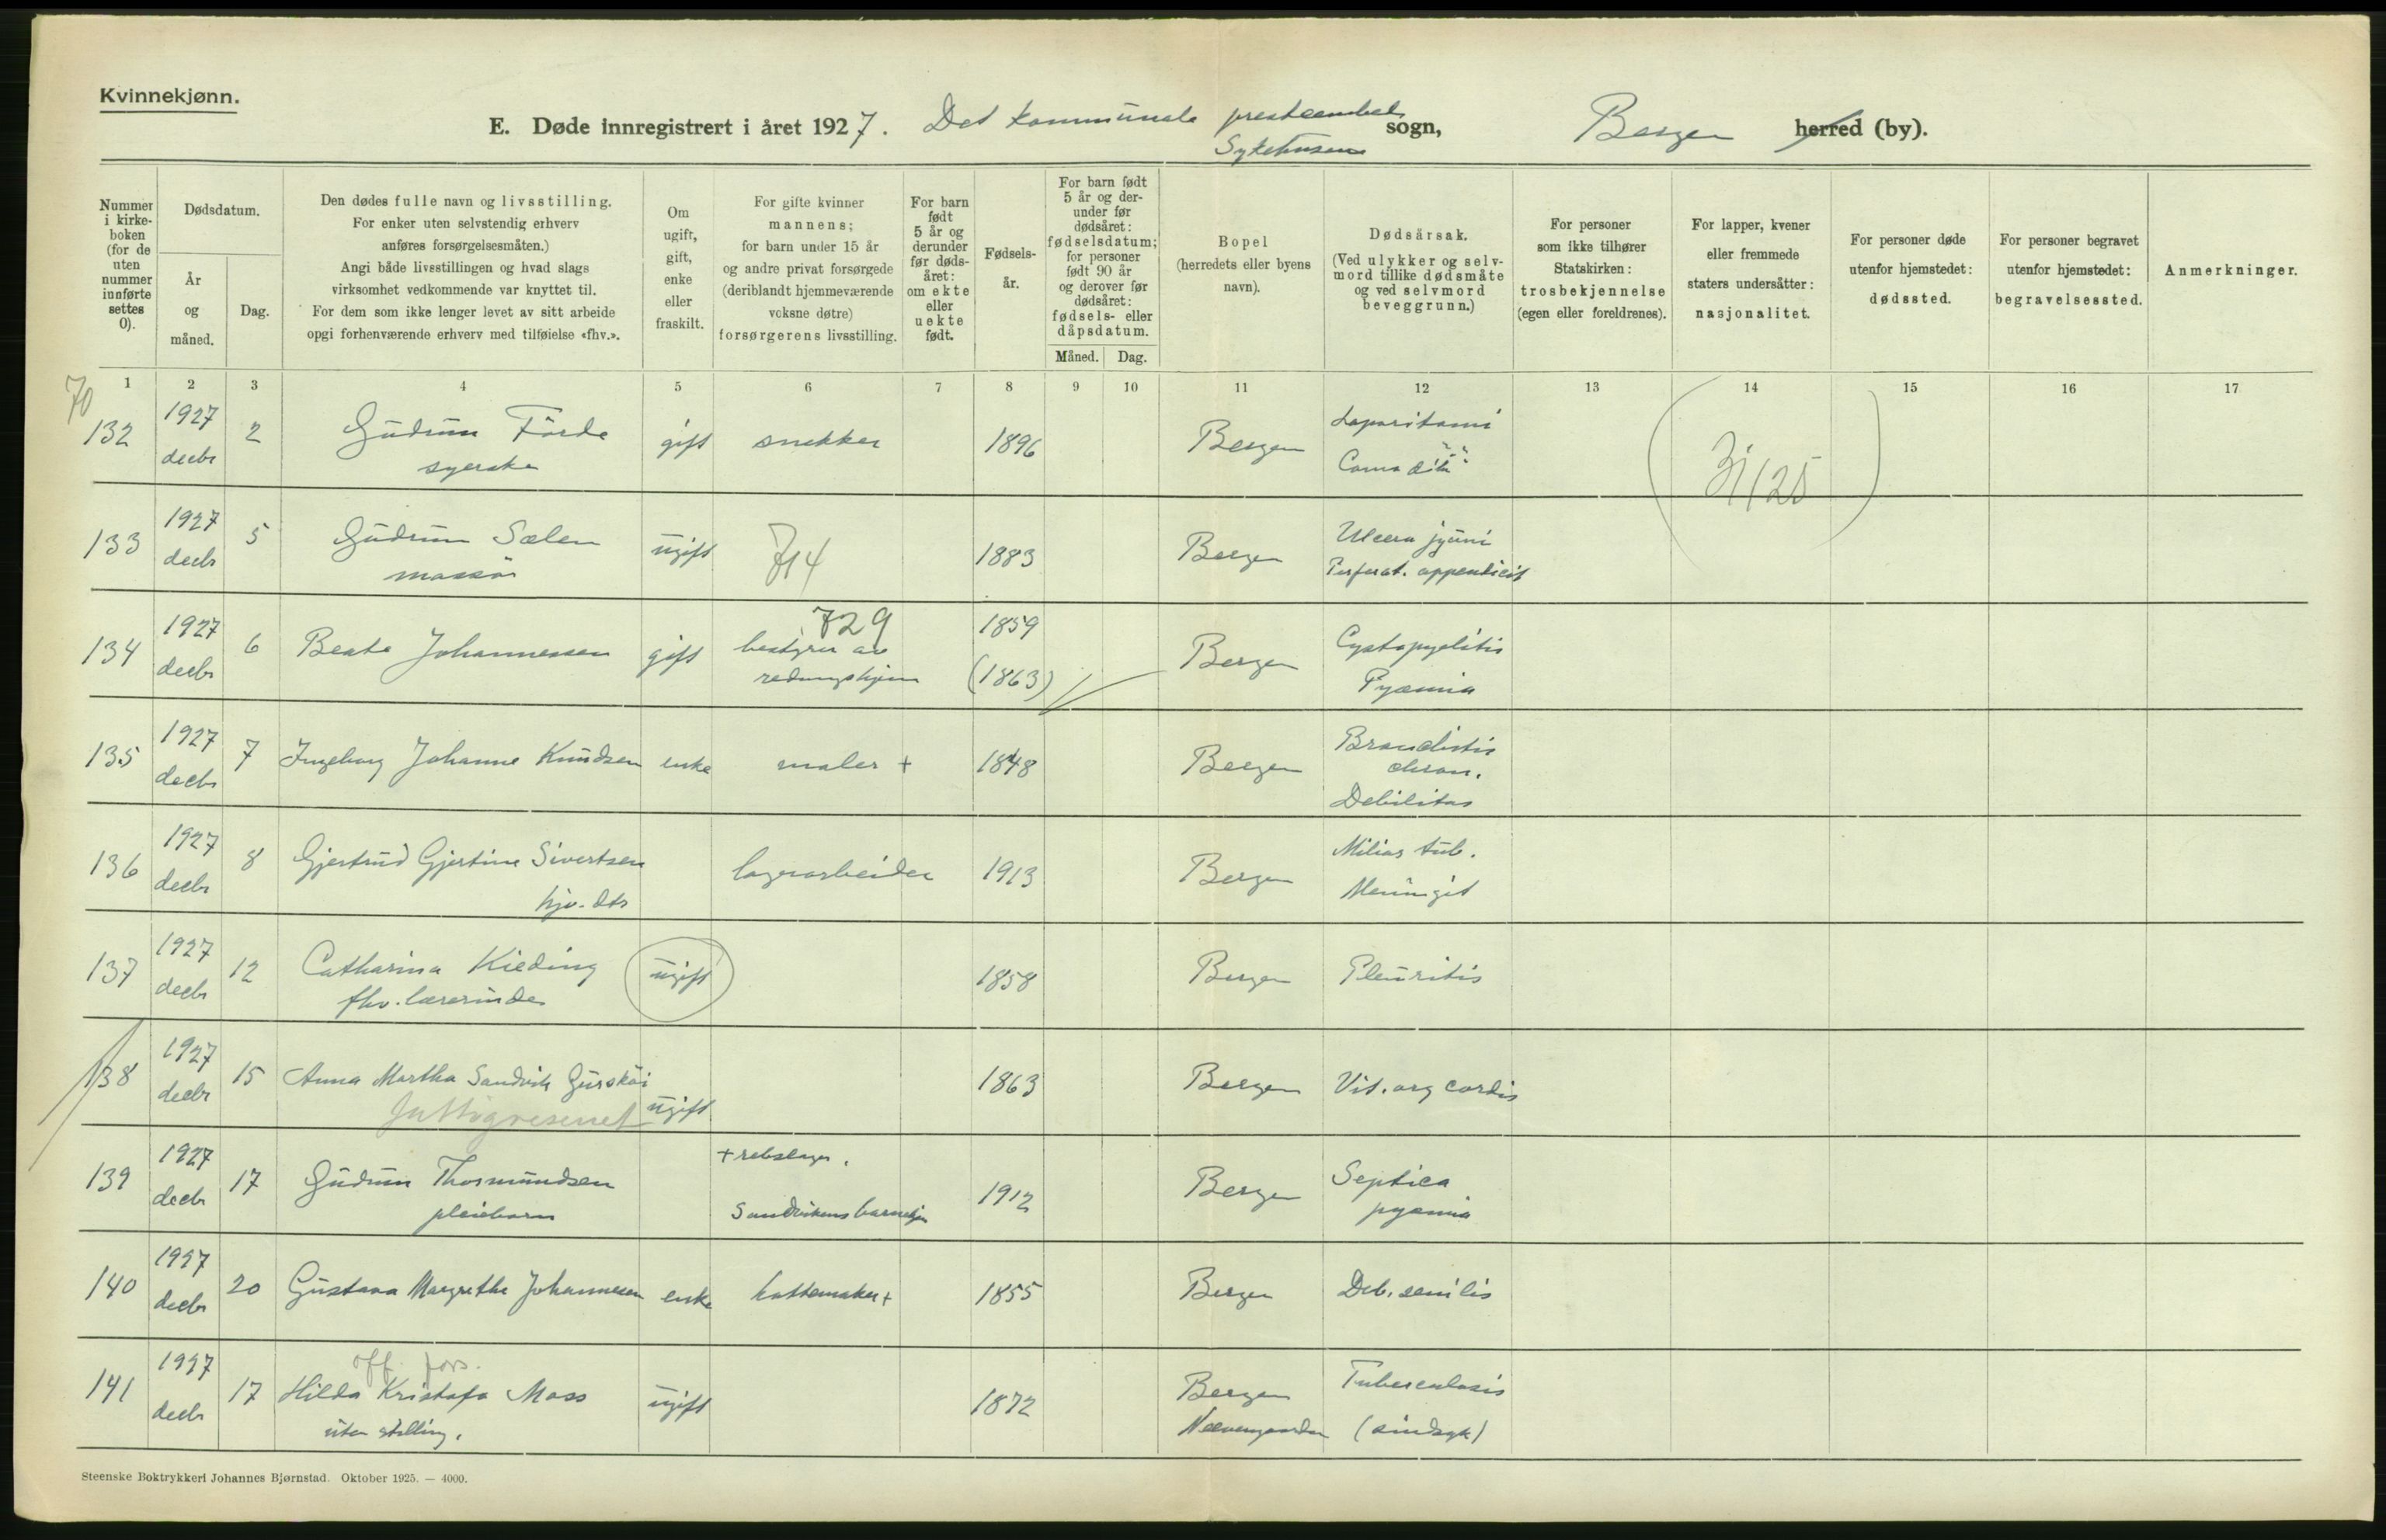 Kvinnekjønn.
E. Døde innregistrert i året 1927. Det kommunale presteembet sogn, Bergen herred (by).
Sykehusene
Nummer i kirke- boken (for de uten nummer innførte settes 0).
Dødsdatum.
År og måned.
Dag.
Den dødes fulle navn og livsstilling.
For enker uten selvstendig erhverv
anføres forsørgelsesmåten.)
Angi både livsstillingen og hvad slags
virksomhet vedkommende var knyttet til.
For dem som ikke lenger levet av sitt arbeide
opgi forhenværende erhverv med tilføielse «fhv.».
Om ugift, gift, enke eller fraskilt.
For gifte kvinner
mannens;
for barn under 15 år
og andre privat forsørgede
(deriblandt hjemmeværende
voksne døtre)
forsørgerens livsstilling.
For barn født 5 år og derunder før døds- året: om ekte eller uekte født.
Fødsels- år.
For barn født 5 år og der- under før dødsåret: fødselsdatum; for personer født 90 år og derover før dødsåret: fødsels- eller dåpsdatum.
Måned. Dag.
Bopel
(herredets eller byens
navn).
Dødsårsak.
(Ved ulykker og selv-
mord tillike dødsmåte
og ved selvmord
beveggrunn.)
For personer
som ikke tilhører
Statskirken:
trosbekjennelse
(egen eller foreldrenes).
For lapper, kvener
eller fremmede
staters undersåtter:
nasjonalitet.
For personer døde
utenfor hjemstedet:
dødssted.
For personer begravet
utenfor hjemstedet:
begravelsessted.
Anmerkninger.
1 2 3 4 5 6 7 8 9 10 11 12 13 14 15 16 17
70
132 1927 decbr 2 Gudrun Førde syerske gift snekker 1896 Bergen
133 1927 decbr 5 Gudrun Sælen massør ugift 714 1883 Bergen Perforat. appendicit
134 1927 decbr 6 Beate Johannessen gift 729 bestyrer av redningshjem 1859 (1863) Bergen Cystopyelitis Pyæmia
135 1927 decbr 7 Ingeborg Johanne Knudsen enke maler + 1848 Bergen Bronchitis chron. Debilitas
136 1927 decbr 8 Gjertrud Gjertine Sivertsen hjv. dtr lagerarbeider 1913 Bergen Miliær tub. Meningit
137 1927 decbr 12 Catharina Kieding fhv. lærerinde ugift 1858 Bergen Pleuritis
138 1927 decbr 15 Anna Martha Sandvik Gurskøi fattigvesenet ugift 1863 Bergen Vit. org cordis
139 1927 decbr 17 Gudrun Thormundsen pleiebarn + rebslager. Sandvikens barnehjem 1912 Bergen Septica pyæmia
140 1927 decbr 20 Gustava Margrethe Johannesen enke hattemaker + 1855 Bergen Deb. senilis
141 1927 decbr 17 off. fors. Hilda Kristofa Moss uten stilling. ugift 1872 Bergen Neevengaarden Tuberculosis (sindsyk)
Steenske Boktrykkeri Johannes Bjørnstad. Oktober 1925. — 4000.